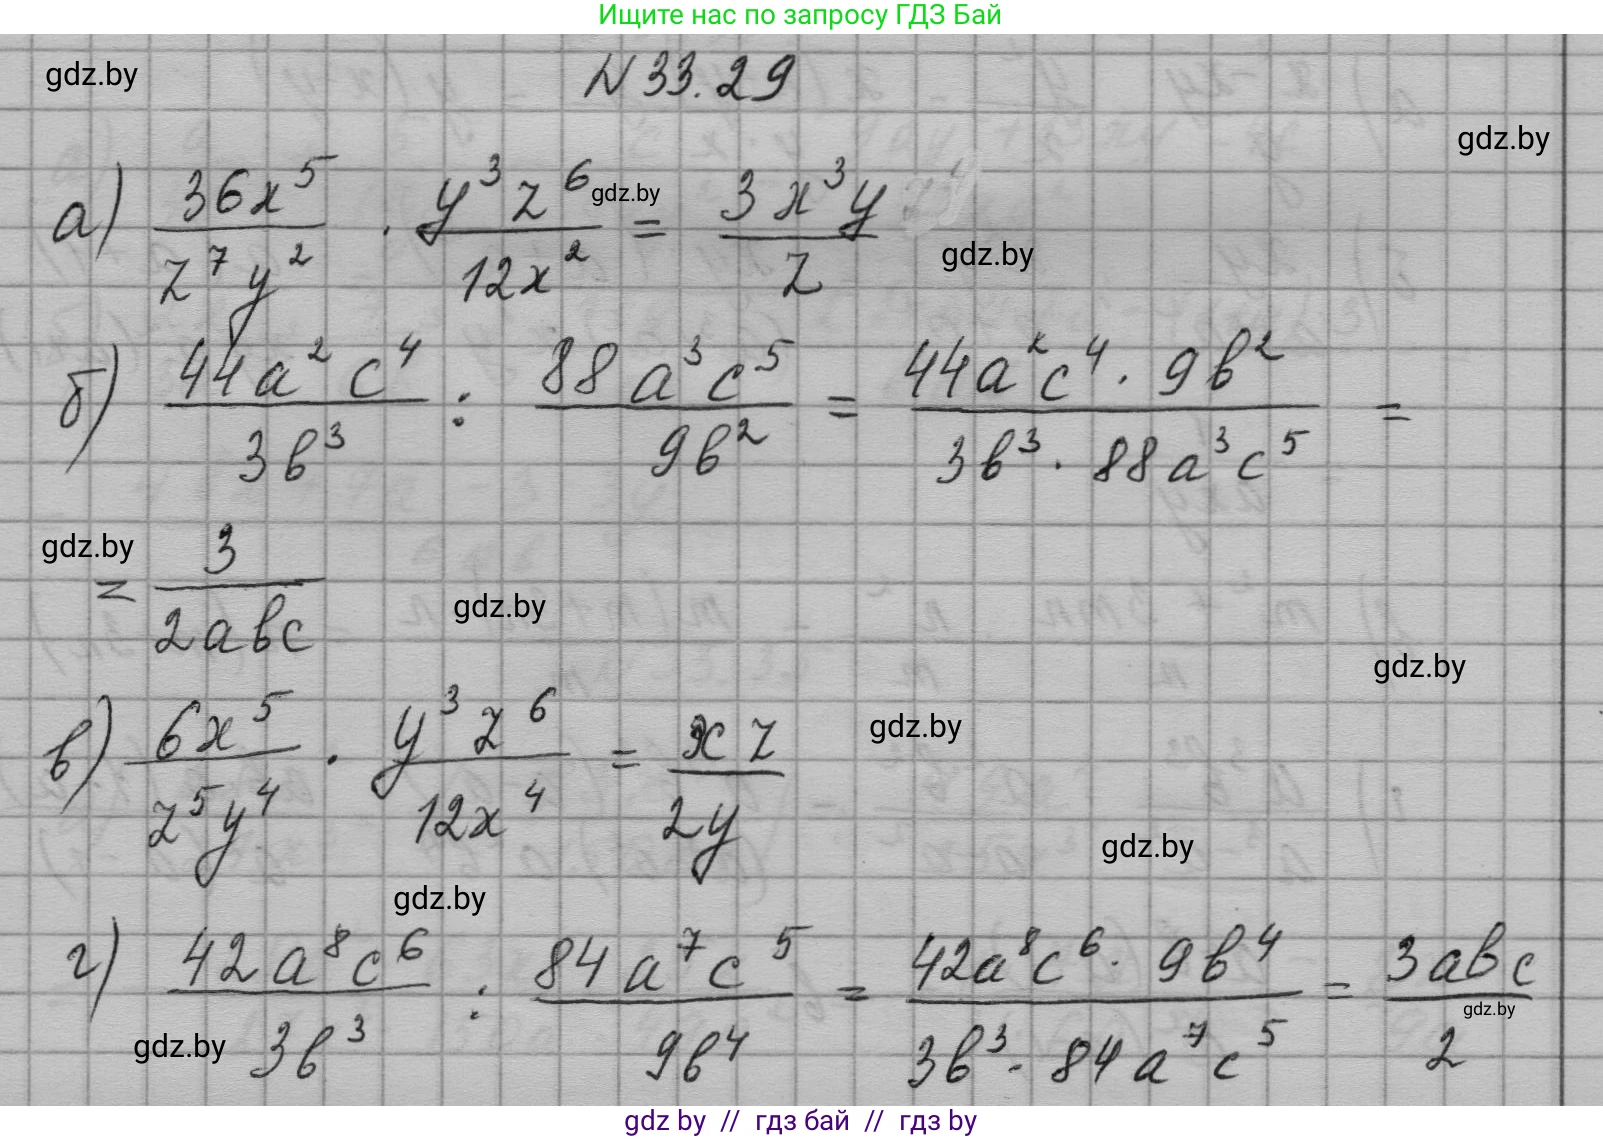 Ищите нас по запросу ГДЗ Бай
N 33.29
gdz.by
gdz.by
а) 36x⁵/z⁷y² · y³z⁶/12x² = 3x³y/z
gdz.by
gdz.by
б) 44a²c⁴/3b³ : 88a³c⁵/9b² = 44a²c⁴ · 9b²/3b³ · 88a³c⁵ =
gdz.by
= 3/2abc
gdz.by
gdz.by
в) 6x⁵/z⁵y⁴ · y³z⁶/12x⁴ = xz/2y
gdz.by
gdz.by
gdz.by
г) 42a⁸c⁶/3b³ : 84a⁷c⁵/9b⁴ = 42a⁸c⁶ · 9b⁴/3b³ · 84a⁷c⁵ = 3abc/2
gdz.by
gdz.by
gdz by // гдз бай // гдз by